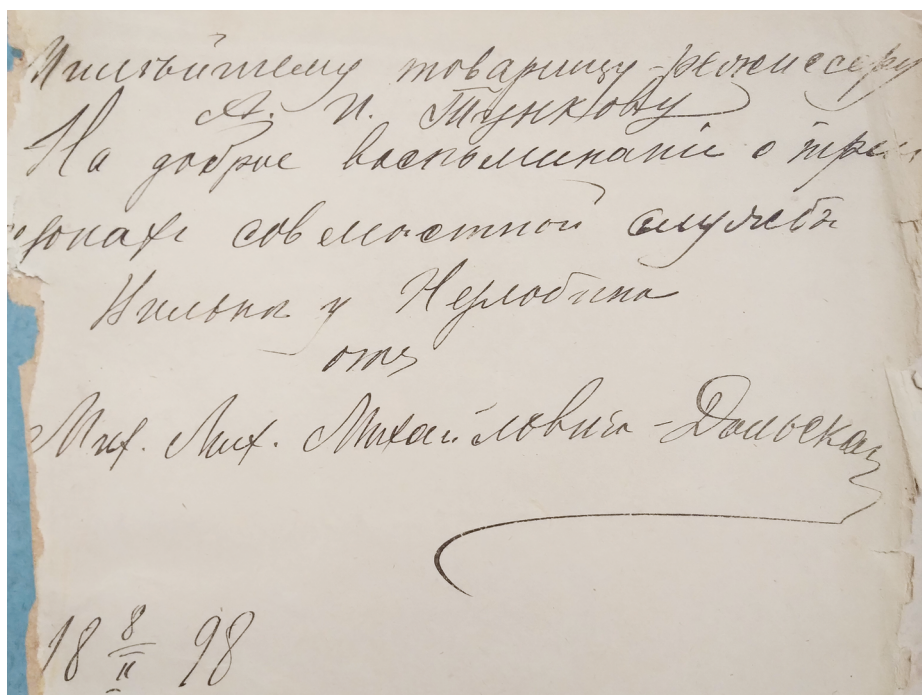 Милѣйшему товарищу-режиссеру
А. П. Тункову
На доброе воспоминаніе о трех
сезонахъ совместной службы
Вильна у Незлобина
отъ
Мих. Мих. Михайловича-Дольскаго
18 8/II 98